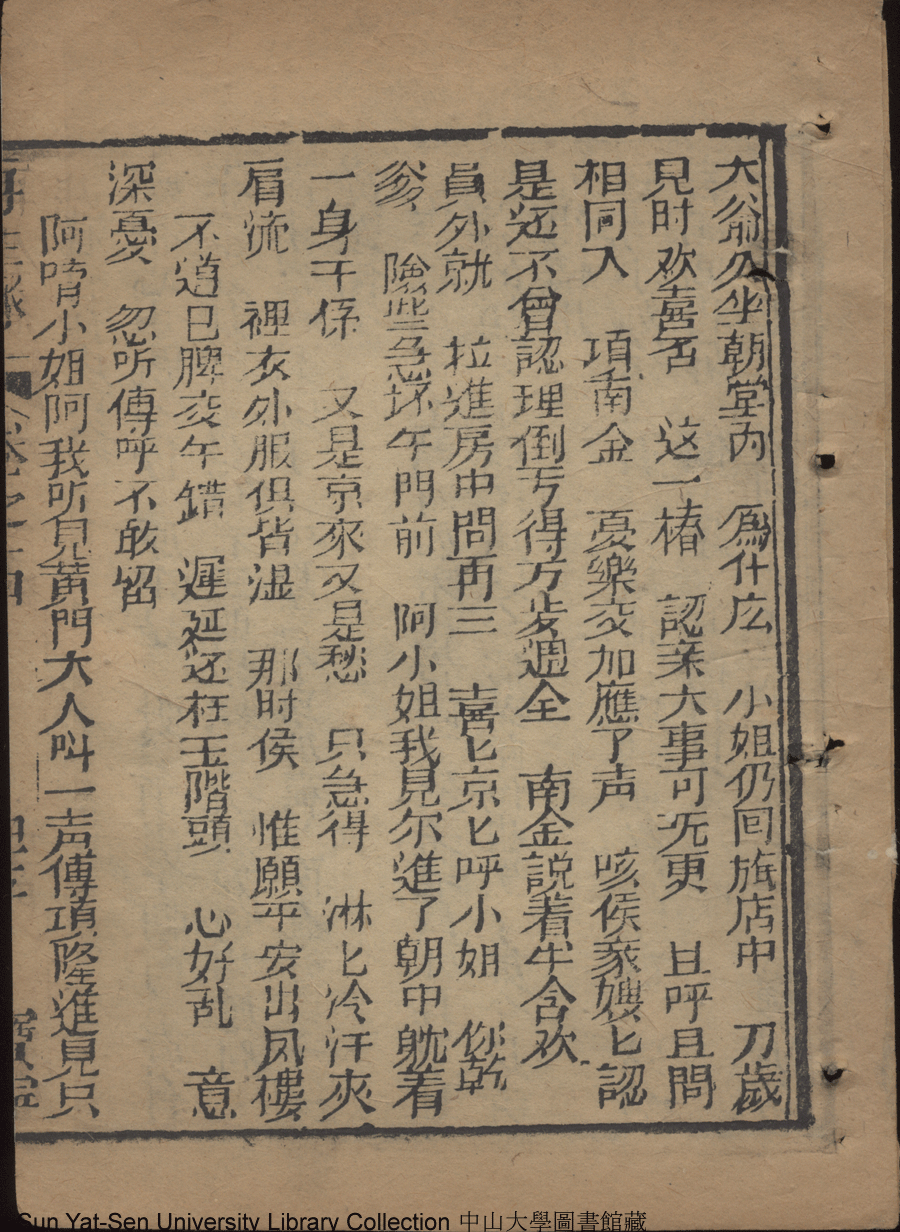 大爺公坐朝堂內　為什庅　小姐仍回旅店中　刀歲
見时欢喜否　这一樁　認亲大事可况更　且呼且問
相同入　項南金　憂樂交加應了声　咳侯家嫂匕認
是还不曾認理倒亏得方步週全　南金說着半含欢
員外就　拉進房中問再三　喜匕京匕呼小姐　你乾
爹　險些急坏午門前　阿小姐我見尔進了朝中躭着
一身干係　又是京來又是愁　只急得　淋匕冷汗夾
肩流　裡衣外服俱皆湿　那时侯　惟願平安出凤樓
不道巳脾交午錯　遲延还在玉階頭　心好乱　意
深憂　忽听傳呼不敢留
阿唷小姐阿我听見黃門大人叫一声傳項隆進見只
Sun Yat-Sen University Library Collection 中山大學圖書館藏